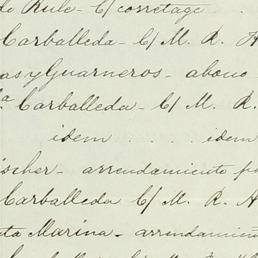 de Rule - C/ corretage
Carballeda - C/ M. R. A
as y Guarneros - abono
ª Carballeda - C/ M. R.
idem . . . . idem
ischer - arrendamiento pa
Carballeda C/ M. R. A
ta Marina - arrendamien